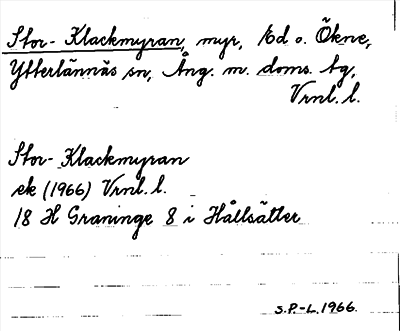 Stor-Klackmyran, myr, Ed o. Ökne,
Ytterlännäs sn, Ång. m. doms. tg,
Vrnl. l.
Stor-Klackmyran
ek (1966) Vrnl. l.
18 H Graninge 8 i Hållsätter
S.P.-L. 1966.